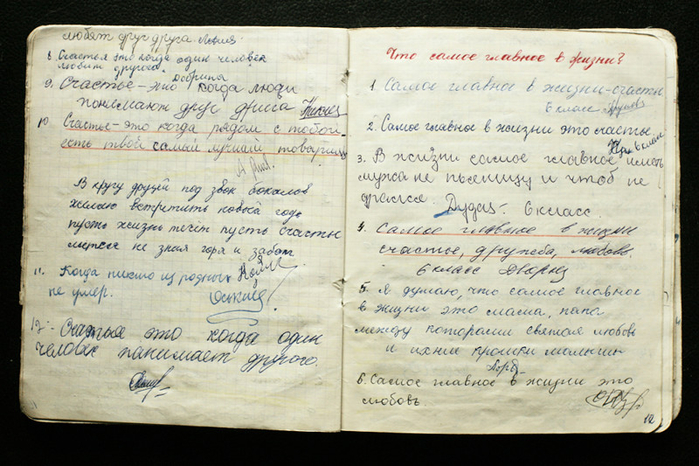 любят друг друга.
8. Счастья это когда один человек
любит другого.
9. Счастье - это когда люди
понимают друг друга
10. Счастье - это когда рядом с тобой
есть твой самый лучший товарищ
В кругу друзей под звон бокалов
желаю встретить новый год
пусть жизнь течёт пусть счастье
не зная горя и забот
11. Когда никто из родных
не умер.
12. Счастье это когда один
человек панимает другого.
Что самое главное в жизни?
1. Самое главное в жизни - счастье
6 класс
2. Самое главное в жизни это счастье
3. В жизни самое главное иметь
мужа не пьяницу и чтоб не
дрался. 6 класс.
4. Самое главное в жизни
счастье, дружба, любовь.
6 класс
5. Я думаю, что самое главное
в жизни это мама, папа
между которыми светлая любовь
и ихние крошки
6. Самое главное в жизни это
любовь
12